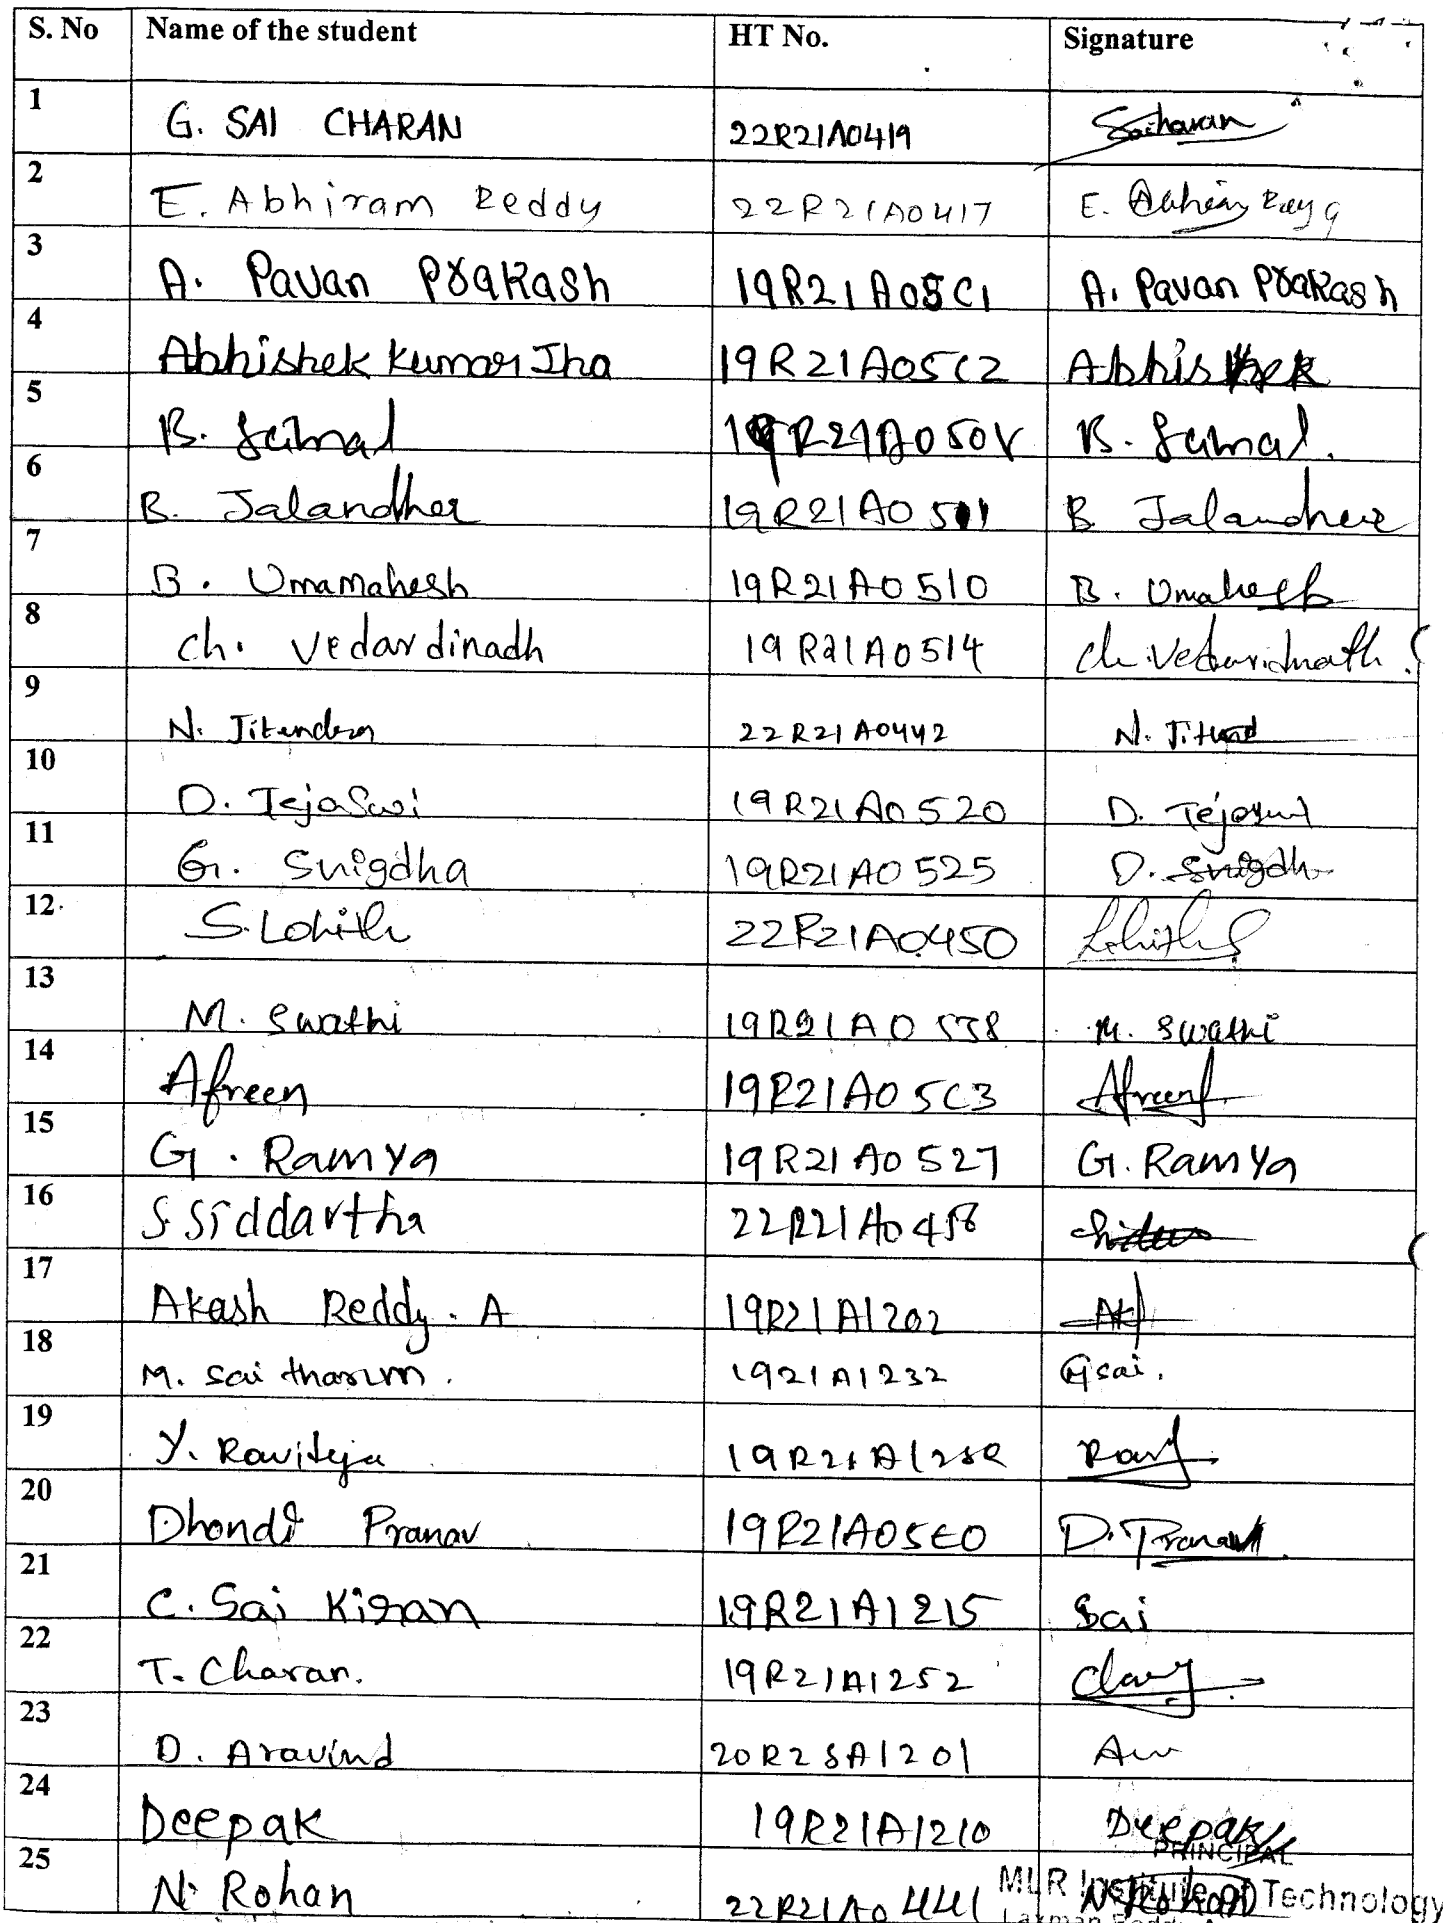 S. No Name of the student HT No. Signature
1 G. SAI CHARAN 22R21A0419 Saicharan
2 E. Abhiram Reddy 22R21A0417 E.
3 A. Pavan Prakash 19R21A05C1 A. Pavan Prakash
4 Abhishek Kumar Jha 19R21A05C2 Abhishek
5 B. 19R21A0508 B.
6 B. Jalandher 19R21A0511 B Jalandher
7 B. Umamahesh 19R21A0510 B. Umahesh
8 Ch. Vedardinadh 19R21A0514 Ch. Vedaridnath.
9 N. Jitendra 22R21A0442 N.
10 D. Tejaswi 19R21A0520 D. Tejaswi
11 G. Snigdha 19R21A0525 D. Snigdh
12. S. Lohith 22R21A0450 Lohith
13 M. Swathi 19R21A0538 M. Swathi
14 Afreen 19R21A05C3 Afreen
15 G. Ramya 19R21A0527 G. Ramya
16 S. Siddartha 22R21A0458
17 Akash Reddy. A 19R21A1202
18 M. Sai tharun. 1921A1232 sai.
19 Y. Raviteja Ravi
20 Dhondi Pranav 19R21A05E0 D. Pranav
21 C. Sai Kiran 19R21A1215 Sai
22 T. Charan. 19R21A1252
23 D. Aravind 20R25A1201
24 Deepak 19R21A1210 Deepak
PRINCIPAL
25 N. Rohan 22R21A0441 N. Rohan
MLR Institute of Technology